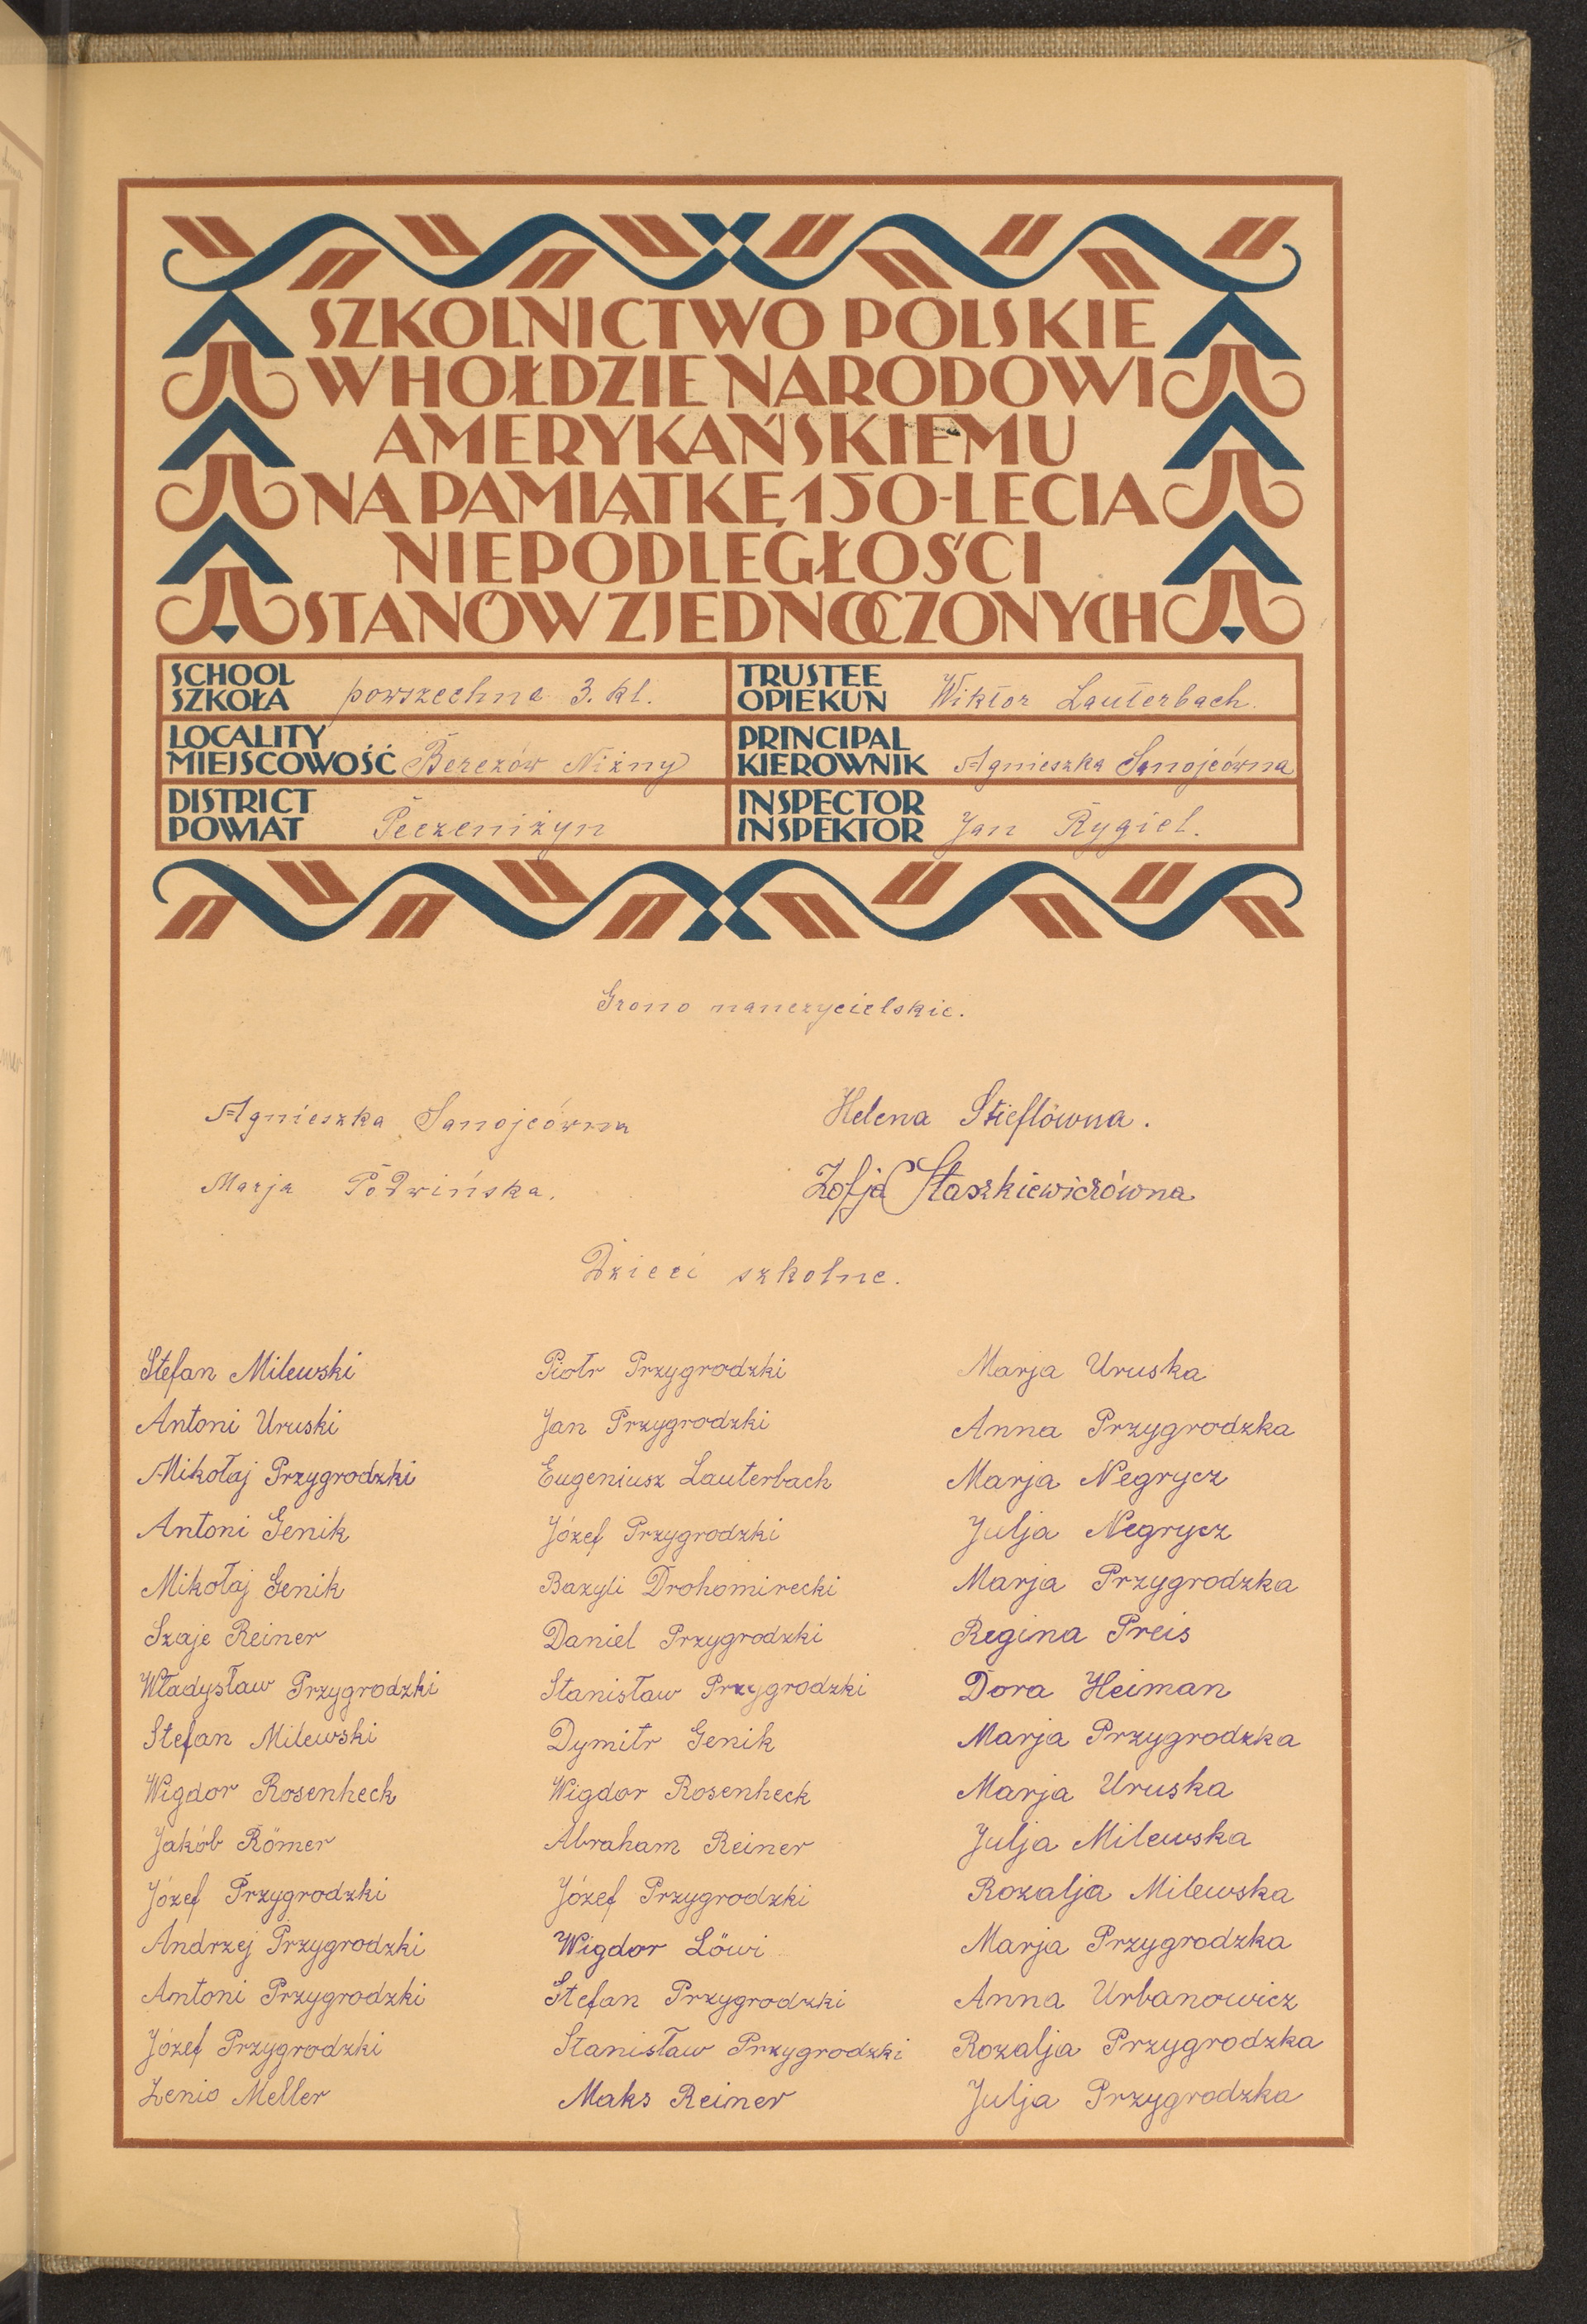 SZKOLNICTWO POLSKIE
W HOŁDZIE NARODOWI
AMERYKAŃSKIEMU
NA PAMIĄTKĘ 150-LECIA
NIEPODLEGŁOŚCI
STANÓW ZJEDNOCZONYCH
SCHOOL
SZKOŁA powszechna 3. kl.
TRUSTEE
OPIEKUN Wiktor Lauterbach.
LOCALITY
MIEJSCOWOŚĆ Berezów Niżny
PRINCIPAL
KIEROWNIK Agnieszka Sanojcówna
DISTRICT
POWIAT Peczeniżyn
INSPECTOR
INSPEKTOR Jan Rygiel.
Grono nauczycielskie.
Agnieszka Sanojcówna
Marja Podwińska.
Helena Stieflówna.
Zofja Staszkiewiczówna
Dzieci szkolne.
Stefan Milewski
Antoni Uruski
Mikołaj Przygrodzki
Antoni Genik
Mikołaj Genik
Szaje Reiner
Władysław Przygrodzki
Stefan Milewski
Wigdor Rosenheck
Jakób Römer
Józef Przygrodzki
Andrzej Przygrodzki
Antoni Przygrodzki
Józef Przygrodzki
Zenio Meller
Piotr Przygrodzki
Jan Przygrodzki
Eugeniusz Lauterbach
Józef Przygrodzki
Bazyli Drohomirecki
Daniel Przygrodzki
Stanisław Przygrodzki
Dymitr Genik
Wigdor Rosenheck
Abraham Reiner
Józef Przygrodzki
Wigdor Löwi
Stefan Przygrodzki
Stanisław Przygrodzki
Maks Reiner
Marja Uruska
Anna Przygrodzka
Marja Negrycz
Julja Negrycz
Marja Przygrodzka
Regina Preis
Dora Heiman
Marja Przygrodzka
Marja Uruska
Julja Milewska
Rozalja Milewska
Marja Przygrodzka
Anna Urbanowicz
Rozalja Przygrodzka
Julja Przygrodzka